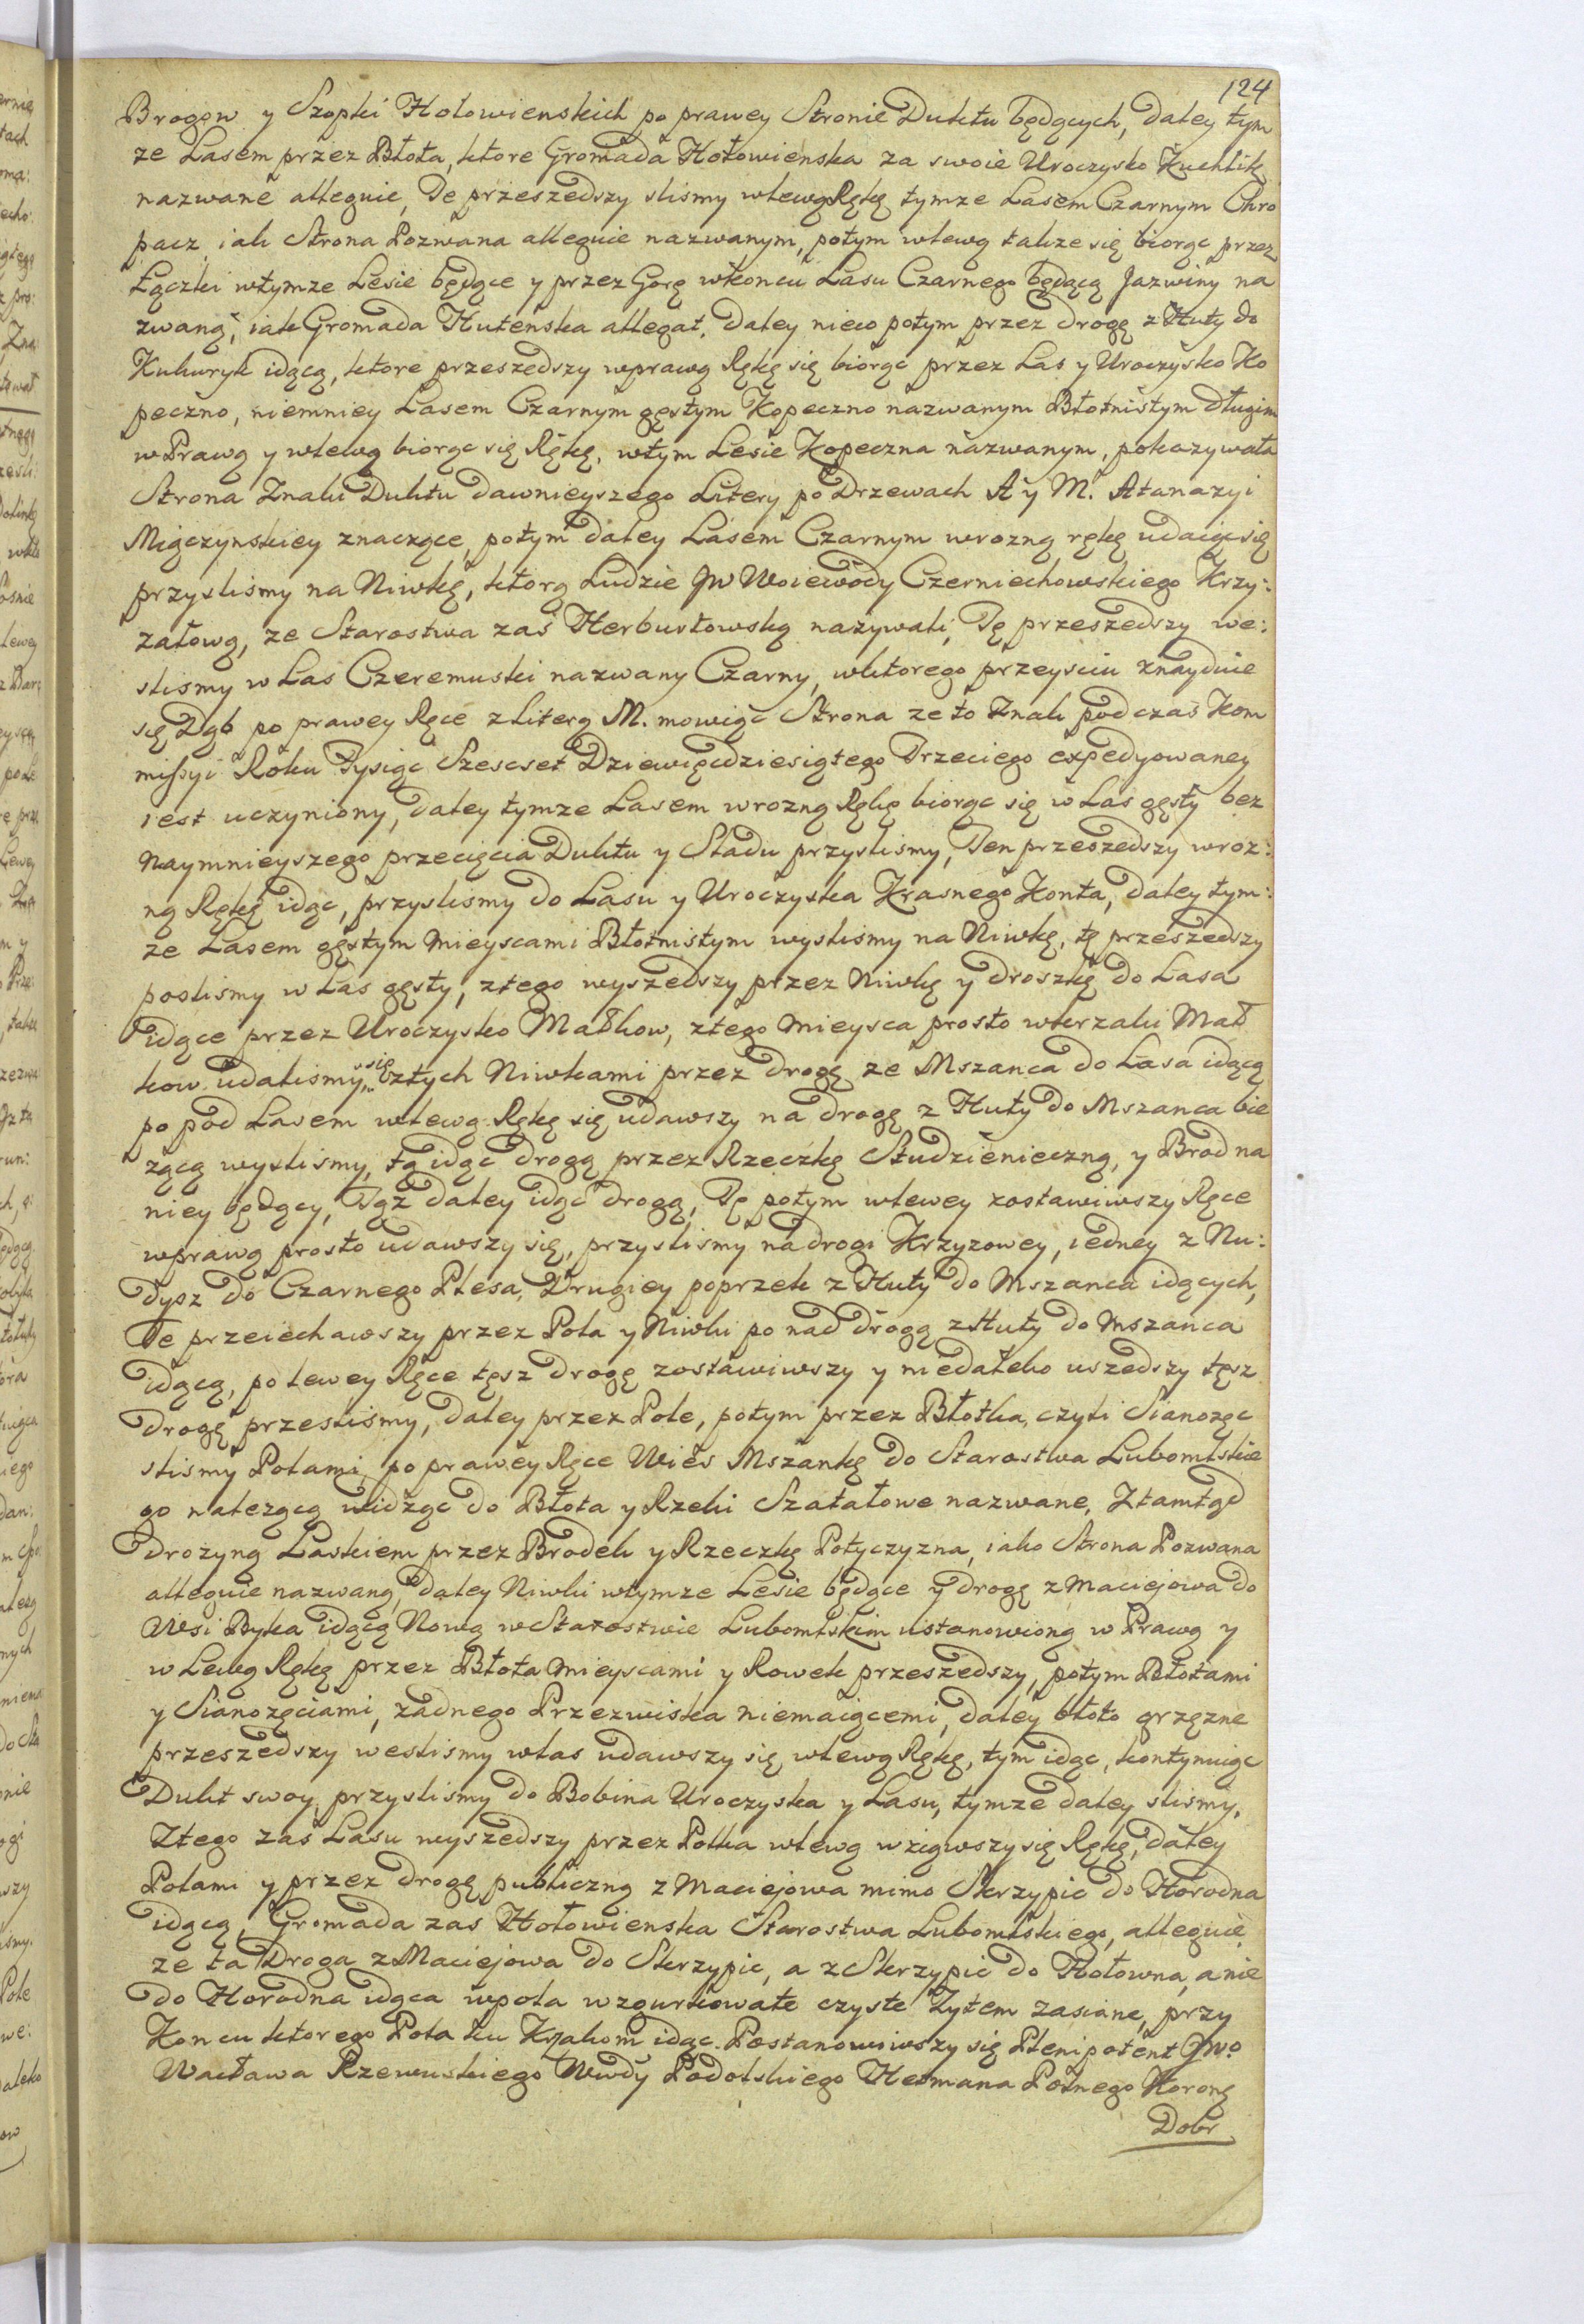 124
Brogow y Szopki Hołowienskich po prawey Stronie Duktu będących, daley tym
ze Lasem przez Błota, ktore Gromada Hołowienska za swoie Uroczysko Kuchlik
nazwane alleguie, Te przeszedszy slismy wlewą Rękę tymze Lasem Czarnym Chro
pacz iak Strona Pozwana alleguie nazwanym, potym wlewą takze się biorąc przez
Łączki wtymze Lesie będące y przez Gorę wkoncu Lasu Czarnego będącą Jazwiny na
zwaną, iak Gromada Hutenska allegat, daley nieco potym przez drogę z Huty do
Kukuryk idącą, ktore przeszedszy wprawą Rękę się biorąc przez Las y Uroczysko Ko
peczno, niemniey Lasem Czarnym gęstym Kopeczno nazwanym Błotnistym długim
w Prawą y wlewą biorąc się Rękę, wtym Lesie Kopeczna nazwanym, pokazywała
Strona Znaki Duktu dawnieyszego Litery po Drzewach A y M. Atanazyi
Miączynskiey znaczące, potym daley Lasem Czarnym wrozną rękę udaiąc się
przyslismy na Niwkę, ktorą Ludzie JW Woiewody Czerniechowskiego Krzy:
załową, ze Starostwa zaś Herburtowską nazywali, Tę przeszedszy we:
slismy w Las Czeremuski nazwany Czarny, wktorego przeysciu znayduie
się Dąb po prawey Ręce z Literą M. mowiąc Strona ze to Znak podczas Kom
missyi Roku Tysiąc Szescset Dziewięcdziesiątego Trzeciego expedyowaney
iest uczyniony, daley tymze Lasem wrozną Rękę biorąc się w Las gęsty bez
Naymnieyszego przecięcia Duktu y Sladu przyslismy, Ten przeszedszy wroz:
ną Rękę idąc, przyslismy do Lasu y Uroczyska Krasnego Konta, daley tym:
ze Lasem gęstym mieyscami Błotnistym wyslismy na Niwkę, tę przeszedszy
poslismy w Las gęsty, ztego wyszedszy przez Niwkę y droszkę do Lasa
idące przez Uroczysko Małkow, ztego mieysca prosto wkrzaki Mał
kow udalismy się ztych Niwkami przez drogę ze Mszanca do Lasa idącą
po pod Lasem wlewą Rękę się udawszy na drogę z Huty do Mszanca bie
zącą wyslismy, tą idąc drogą przez Rzeczkę Studzienieczną, y Brod na
niey będący, Tąż daley idąc drogą, Tę potym wlewey zostawiwszy Ręce
wprawą prosto udawszy się, przyslismy na drogi Krzyzowey, iedney z Nu:
dysz do Czarnego Plesa, Drugiey poprzek z Huty do Mszanca idących,
Te przeiechawszy przez Pola y Niwki ponad drogą zHuty do Mszanca
idącą, po lewey Ręce tęsz drogę zostawiwszy y niedaleko uszedszy tęsz
drogę przeslismy, daley przez Pole, potym przez Błotka, czyli Sianozęc
slismy Polami, po prawey Ręce Wieś Mszankę do Starostwa Lubomlskie
go nalezącą widząc do Błota y Rzeki Szatałowe nazwane, Ztamtąd
drozyną Laskiem przez Brodek y Rzeczkę Potyczyzna, iako Strona Pozwana
alleguie nazwaną, daley Niwki wtymze Lesie będące y drogę z Maciejowa do
Wsi Byka idącą Nową w Starostwie Lubomlskim ustanowioną w Prawą y
w Lewą Rękę przez Błota mieyscami y Rowek przeszedszy, potym Błotami
y Sianozęciami, zadnego Przezwiska niemaiącemi, daley błoto grzęzne
przeszedszy weslismy wlas udawszy się wlewą Rękę, tym idąc, kontynuiąc
Dukt swoy, przyslismy do Bobina Uroczyska y Lasu, tymze daley slismy,
Ztego zaś Lasu wyszedszy przez Polka wlewą wziąwszy się Rękę, daley
Polami y przez drogę publiczną z Maciejowa mimo Skrzypic do Horodna
idącą, Gromada zas Hołowienska Starostwa Lubomlskiego, alleguie
ze ta Droga z Maciejowa do Skrzypic, a z Skrzypic do Hołowna, a nie
do Horodna idąca wpola wzgurkowate czyste Zytem zasiane, przy
Koncu ktorego Pola ku Krzakom idąc. Postanowiwszy się Plenipotent JWo
Wacława Rzewuskiego Wwdy Podolskiego Hetmana Polnego Korong
Dobr